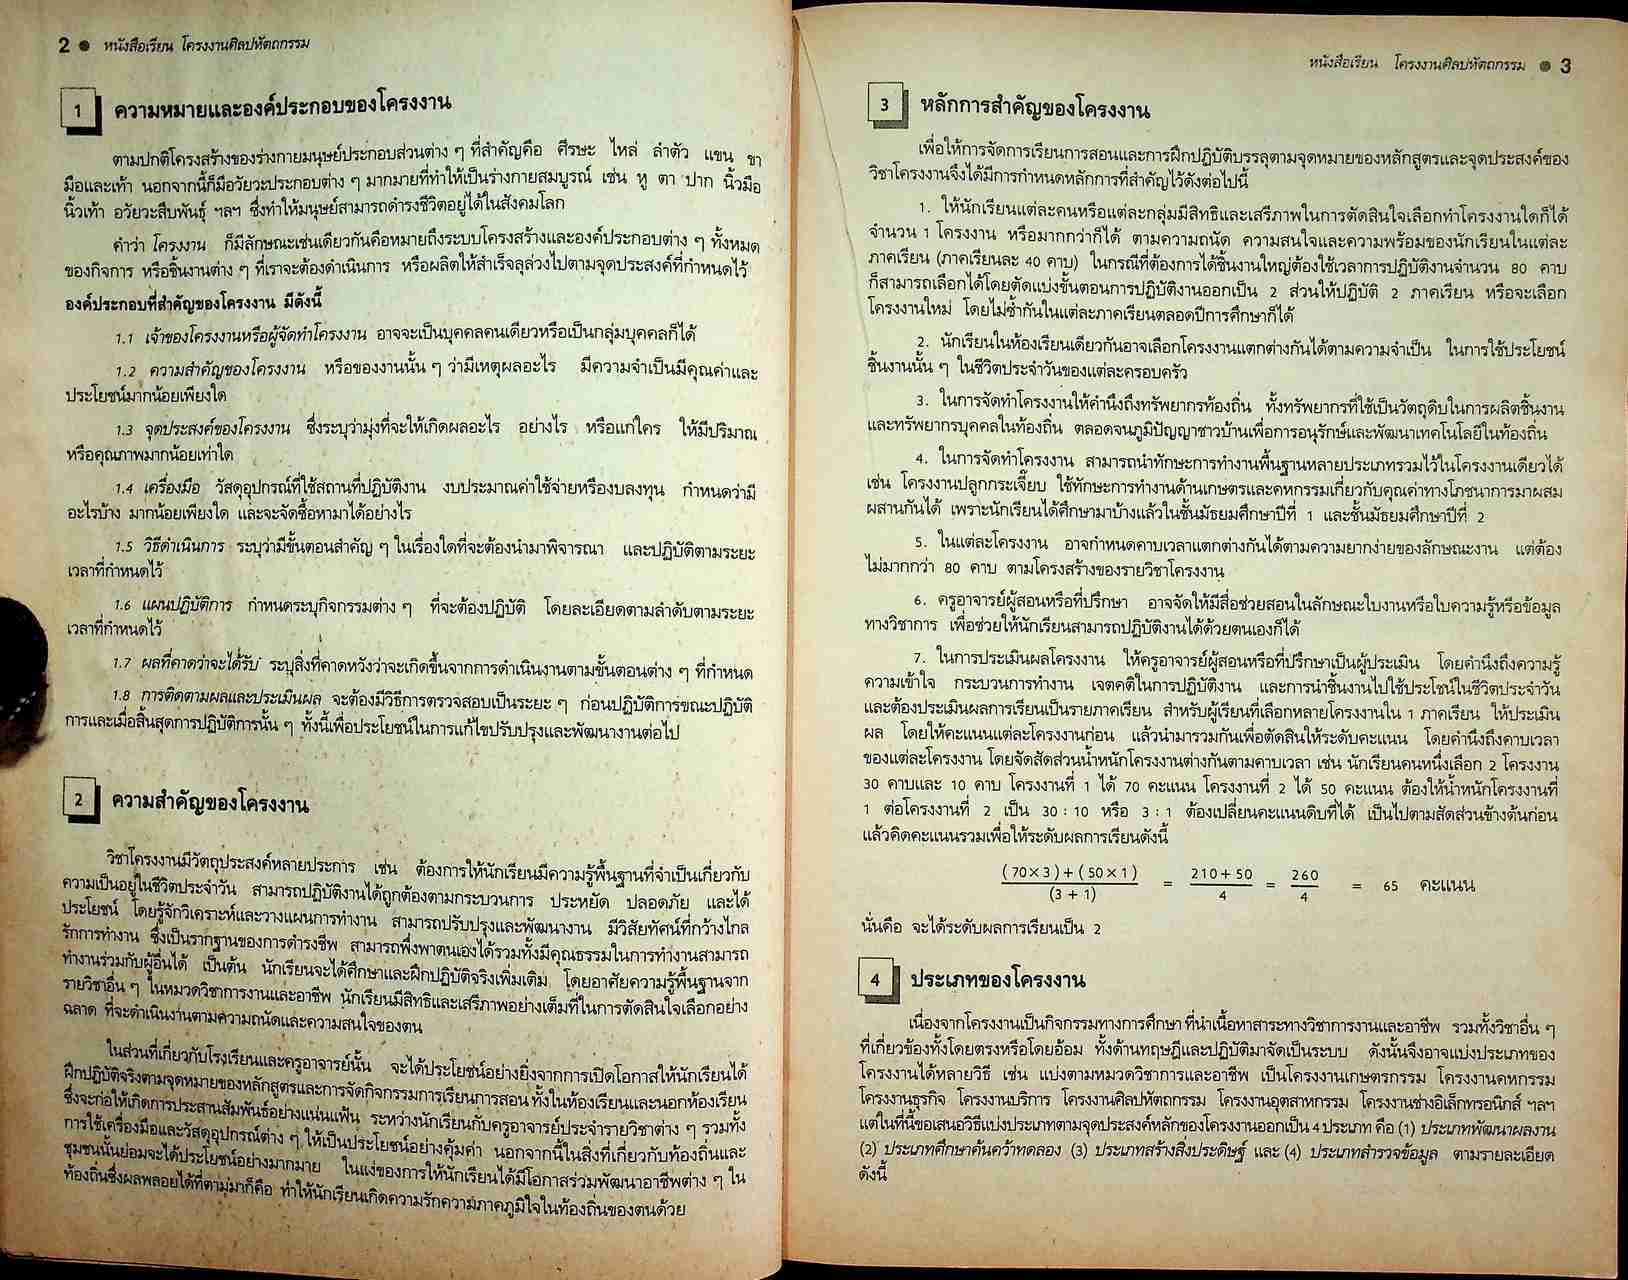 2 ● หนังสือเรียน โครงงานศิลปหัตถกรรม
1 ความหมายและองค์ประกอบของโครงงาน
ตามปกติโครงสร้างของร่างกายมนุษย์ประกอบส่วนต่าง ๆ ที่สำคัญคือ ศีรษะ ไหล่ ลำตัว แขน ขา
มือและเท้า นอกจากนี้ก็มีอวัยวะประกอบต่าง ๆ มากมายที่ทำให้เป็นร่างกายสมบูรณ์ เช่น หู ตา ปาก นิ้วมือ
นิ้วเท้า อวัยวะสืบพันธุ์ ฯลฯ ซึ่งทำให้มนุษย์สามารถดำรงชีวิตอยู่ได้ในสังคมโลก
คำว่า โครงงาน ก็มีลักษณะเช่นเดียวกันคือหมายถึงระบบโครงสร้างและองค์ประกอบต่าง ๆ ทั้งหมด
ของกิจการ หรือชิ้นงานต่าง ๆ ที่เราจะต้องดำเนินการ หรือผลิตให้สำเร็จลุล่วงไปตามจุดประสงค์ที่กำหนดไว้
องค์ประกอบที่สำคัญของโครงงาน มีดังนี้
1.1 เจ้าของโครงงานหรือผู้จัดทำโครงงาน อาจจะเป็นบุคคลคนเดียวหรือเป็นกลุ่มบุคคลก็ได้
1.2 ความสำคัญของโครงงาน หรือของงานนั้น ๆ ว่ามีเหตุผลอะไร มีความจำเป็นมีคุณค่าและ
ประโยชน์มากน้อยเพียงใด
1.3 จุดประสงค์ของโครงงาน ซึ่งระบุว่ามุ่งที่จะให้เกิดผลอะไร อย่างไร หรือแก่ใคร ให้มีปริมาณ
หรือคุณภาพมากน้อยเท่าใด
1.4 เครื่องมือ วัสดุอุปกรณ์ที่ใช้สถานที่ปฏิบัติงาน งบประมาณค่าใช้จ่ายหรืองบลงทุน กำหนดว่ามี
อะไรบ้าง มากน้อยเพียงใด และจะจัดซื้อหามาได้อย่างไร
1.5 วิธีดำเนินการ ระบุว่ามีขั้นตอนสำคัญ ๆ ในเรื่องใดที่จะต้องนำมาพิจารณา และปฏิบัติตามระยะ
เวลาที่กำหนดไว้
1.6 แผนปฏิบัติการ กำหนดระบุกิจกรรมต่าง ๆ ที่จะต้องปฏิบัติ โดยละเอียดตามลำดับตามระยะ
เวลาที่กำหนดไว้
1.7 ผลที่คาดว่าจะได้รับ ระบุสิ่งที่คาดหวังว่าจะเกิดขึ้นจากการดำเนินงานตามขั้นตอนต่าง ๆ ที่กำหนด
1.8 การติดตามผลและประเมินผล จะต้องมีวิธีการตรวจสอบเป็นระยะ ๆ ก่อนปฏิบัติการขณะปฏิบัติ
การและเมื่อสิ้นสุดการปฏิบัติการนั้น ๆ ทั้งนี้เพื่อประโยชน์ในการแก้ไขปรับปรุงและพัฒนางานต่อไป
2 ความสำคัญของโครงงาน
วิชาโครงงานมีวัตถุประสงค์หลายประการ เช่น ต้องการให้นักเรียนมีความรู้พื้นฐานที่จำเป็นเกี่ยวกับ
ความเป็นอยู่ในชีวิตประจำวัน สามารถปฏิบัติงานได้ถูกต้องตามกระบวนการ ประหยัด ปลอดภัย และได้
ประโยชน์ โดยรู้จักวิเคราะห์และวางแผนการทำงาน สามารถปรับปรุงและพัฒนางาน มีวิสัยทัศน์ที่กว้างไกล
รักการทำงาน ซึ่งเป็นรากฐานของการดำรงชีพ สามารถพึ่งพาตนเองได้รวมทั้งมีคุณธรรมในการทำงานสามารถ
ทำงานร่วมกับผู้อื่นได้ เป็นต้น นักเรียนจะได้ศึกษาและฝึกปฏิบัติจริงเพิ่มเติม โดยอาศัยความรู้พื้นฐานจาก
รายวิชาอื่น ๆ ในหมวดวิชาการงานและอาชีพ นักเรียนมีสิทธิและเสรีภาพอย่างเต็มที่ในการตัดสินใจเลือกอย่าง
ฉลาด ที่จะดำเนินงานตามความถนัดและความสนใจของตน
ในส่วนที่เกี่ยวกับโรงเรียนและครูอาจารย์นั้น จะได้ประโยชน์อย่างยิ่งจากการเปิดโอกาสให้นักเรียนได้
ฝึกปฏิบัติจริงตามจุดหมายของหลักสูตรและการจัดกิจกรรมการเรียนการสอน ทั้งในห้องเรียนและนอกห้องเรียน
ซึ่งจะก่อให้เกิดการประสานสัมพันธ์อย่างแน่นแฟ้น ระหว่างนักเรียนกับครูอาจารย์ประจำรายวิชาต่าง ๆ รวมทั้ง
การใช้เครื่องมือและวัสดุอุปกรณ์ต่าง ๆ ให้เป็นประโยชน์อย่างคุ้มค่า นอกจากนี้ในสิ่งที่เกี่ยวกับท้องถิ่นและ
ชุมชนนั้นย่อมจะได้ประโยชน์อย่างมากมาย ในแง่ของการให้นักเรียนได้มีโอกาสร่วมพัฒนาอาชีพต่าง ๆ ใน
ท้องถิ่นซึ่งผลพลอยได้ที่ตามมาก็คือ ทำให้นักเรียนเกิดความรักความภาคภูมิใจในท้องถิ่นของตนด้วย
หนังสือเรียน โครงงานศิลปหัตถกรรม ● 3
3 หลักการสำคัญของโครงงาน
เพื่อให้การจัดการเรียนการสอนและการฝึกปฏิบัติบรรลุตามจุดหมายของหลักสูตรและจุดประสงค์ของ
วิชาโครงงานจึงได้มีการกำหนดหลักการที่สำคัญไว้ดังต่อไปนี้
1. ให้นักเรียนแต่ละคนหรือแต่ละกลุ่มมีสิทธิและเสรีภาพในการตัดสินใจเลือกทำโครงงานใดก็ได้
จำนวน 1 โครงงาน หรือมากกว่าก็ได้ ตามความถนัด ความสนใจและความพร้อมของนักเรียนในแต่ละ
ภาคเรียน (ภาคเรียนละ 40 คาบ) ในกรณีที่ต้องการได้ชิ้นงานใหญ่ต้องใช้เวลาการปฏิบัติงานจำนวน 80 คาบ
ก็สามารถเลือกได้โดยตัดแบ่งขั้นตอนการปฏิบัติงานออกเป็น 2 ส่วนให้ปฏิบัติ 2 ภาคเรียน หรือจะเลือก
โครงงานใหม่ โดยไม่ซ้ำกันในแต่ละภาคเรียนตลอดปีการศึกษาก็ได้
2. นักเรียนในห้องเรียนเดียวกันอาจเลือกโครงงานแตกต่างกันได้ตามความจำเป็น ในการใช้ประโยชน์
ชิ้นงานนั้น ๆ ในชีวิตประจำวันของแต่ละครอบครัว
3. ในการจัดทำโครงงานให้คำนึงถึงทรัพยากรท้องถิ่น ทั้งทรัพยากรที่ใช้เป็นวัตถุดิบในการผลิตชิ้นงาน
และทรัพยากรบุคคลในท้องถิ่น ตลอดจนภูมิปัญญาชาวบ้านเพื่อการอนุรักษ์และพัฒนาเทคโนโลยีในท้องถิ่น
4. ในการจัดทำโครงงาน สามารถนำทักษะการทำงานพื้นฐานหลายประเภทรวมไว้ในโครงงานเดียวได้
เช่น โครงงานปลูกกระเจี๊ยบ ใช้ทักษะการทำงานด้านเกษตรและคหกรรมเกี่ยวกับคุณค่าทางโภชนาการมาผสม
ผสานกันได้ เพราะนักเรียนได้ศึกษามาบ้างแล้วในชั้นมัธยมศึกษาปีที่ 1 และชั้นมัธยมศึกษาปีที่ 2
5. ในแต่ละโครงงาน อาจกำหนดคาบเวลาแตกต่างกันได้ตามความยากง่ายของลักษณะงาน แต่ต้อง
ไม่มากกว่า 80 คาบ ตามโครงสร้างของรายวิชาโครงงาน
6. ครูอาจารย์ผู้สอนหรือที่ปรึกษา อาจจัดให้มีสื่อช่วยสอนในลักษณะใบงานหรือใบความรู้หรือข้อมูล
ทางวิชาการ เพื่อช่วยให้นักเรียนสามารถปฏิบัติงานได้ด้วยตนเองก็ได้
7. ในการประเมินผลโครงงาน ให้ครูอาจารย์ผู้สอนหรือที่ปรึกษาเป็นผู้ประเมิน โดยคำนึงถึงความรู้
ความเข้าใจ กระบวนการทำงาน เจตคติในการปฏิบัติงาน และการนำชิ้นงานไปใช้ประโยชน์ในชีวิตประจำวัน
และต้องประเมินผลการเรียนเป็นรายภาคเรียน สำหรับผู้เรียนที่เลือกหลายโครงงานใน 1 ภาคเรียน ให้ประเมิน
ผล โดยให้คะแนนแต่ละโครงงานก่อน แล้วนำมารวมกันเพื่อตัดสินให้ระดับคะแนน โดยคำนึงถึงคาบเวลา
ของแต่ละโครงงาน โดยจัดสัดส่วนน้ำหนักโครงงานต่างกันตามคาบเวลา เช่น นักเรียนคนหนึ่งเลือก 2 โครงงาน
30 คาบและ 10 คาบ โครงงานที่ 1 ได้ 70 คะแนน โครงงานที่ 2 ได้ 50 คะแนน ต้องให้น้ำหนักโครงงานที่
1 ต่อโครงงานที่ 2 เป็น 30 : 10 หรือ 3 : 1 ต้องเปลี่ยนคะแนนดิบที่ได้ เป็นไปตามสัดส่วนข้างต้นก่อน
แล้วคิดคะแนนรวมเพื่อให้ระดับผลการเรียนดังนี้
(70×3)+(50×1) / (3+1) = 210+50 / 4 = 260 / 4 = 65 คะแนน
นั่นคือ จะได้ระดับผลการเรียนเป็น 2
4 ประเภทของโครงงาน
เนื่องจากโครงงานเป็นกิจกรรมทางการศึกษา ที่นำเนื้อหาสาระทางวิชาการงานและอาชีพ รวมทั้งวิชาอื่น ๆ
ที่เกี่ยวข้องทั้งโดยตรงหรือโดยอ้อม ทั้งด้านทฤษฎีและปฏิบัติมาจัดเป็นระบบ ดังนั้นจึงอาจแบ่งประเภทของ
โครงงานได้หลายวิธี เช่น แบ่งตามหมวดวิชาการและอาชีพ เป็นโครงงานเกษตรกรรม โครงงานคหกรรม
โครงงานธุรกิจ โครงงานบริการ โครงงานศิลปหัตถกรรม โครงงานอุตสาหกรรม โครงงานช่างอิเล็กทรอนิกส์ ฯลฯ
แต่ในที่นี้ขอเสนอวิธีแบ่งประเภทตามจุดประสงค์หลักของโครงงานออกเป็น 4 ประเภท คือ (1) ประเภทพัฒนาผลงาน
(2) ประเภทศึกษาค้นคว้าทดลอง (3) ประเภทสร้างสิ่งประดิษฐ์ และ (4) ประเภทสำรวจข้อมูล ตามรายละเอียด
ดังนี้